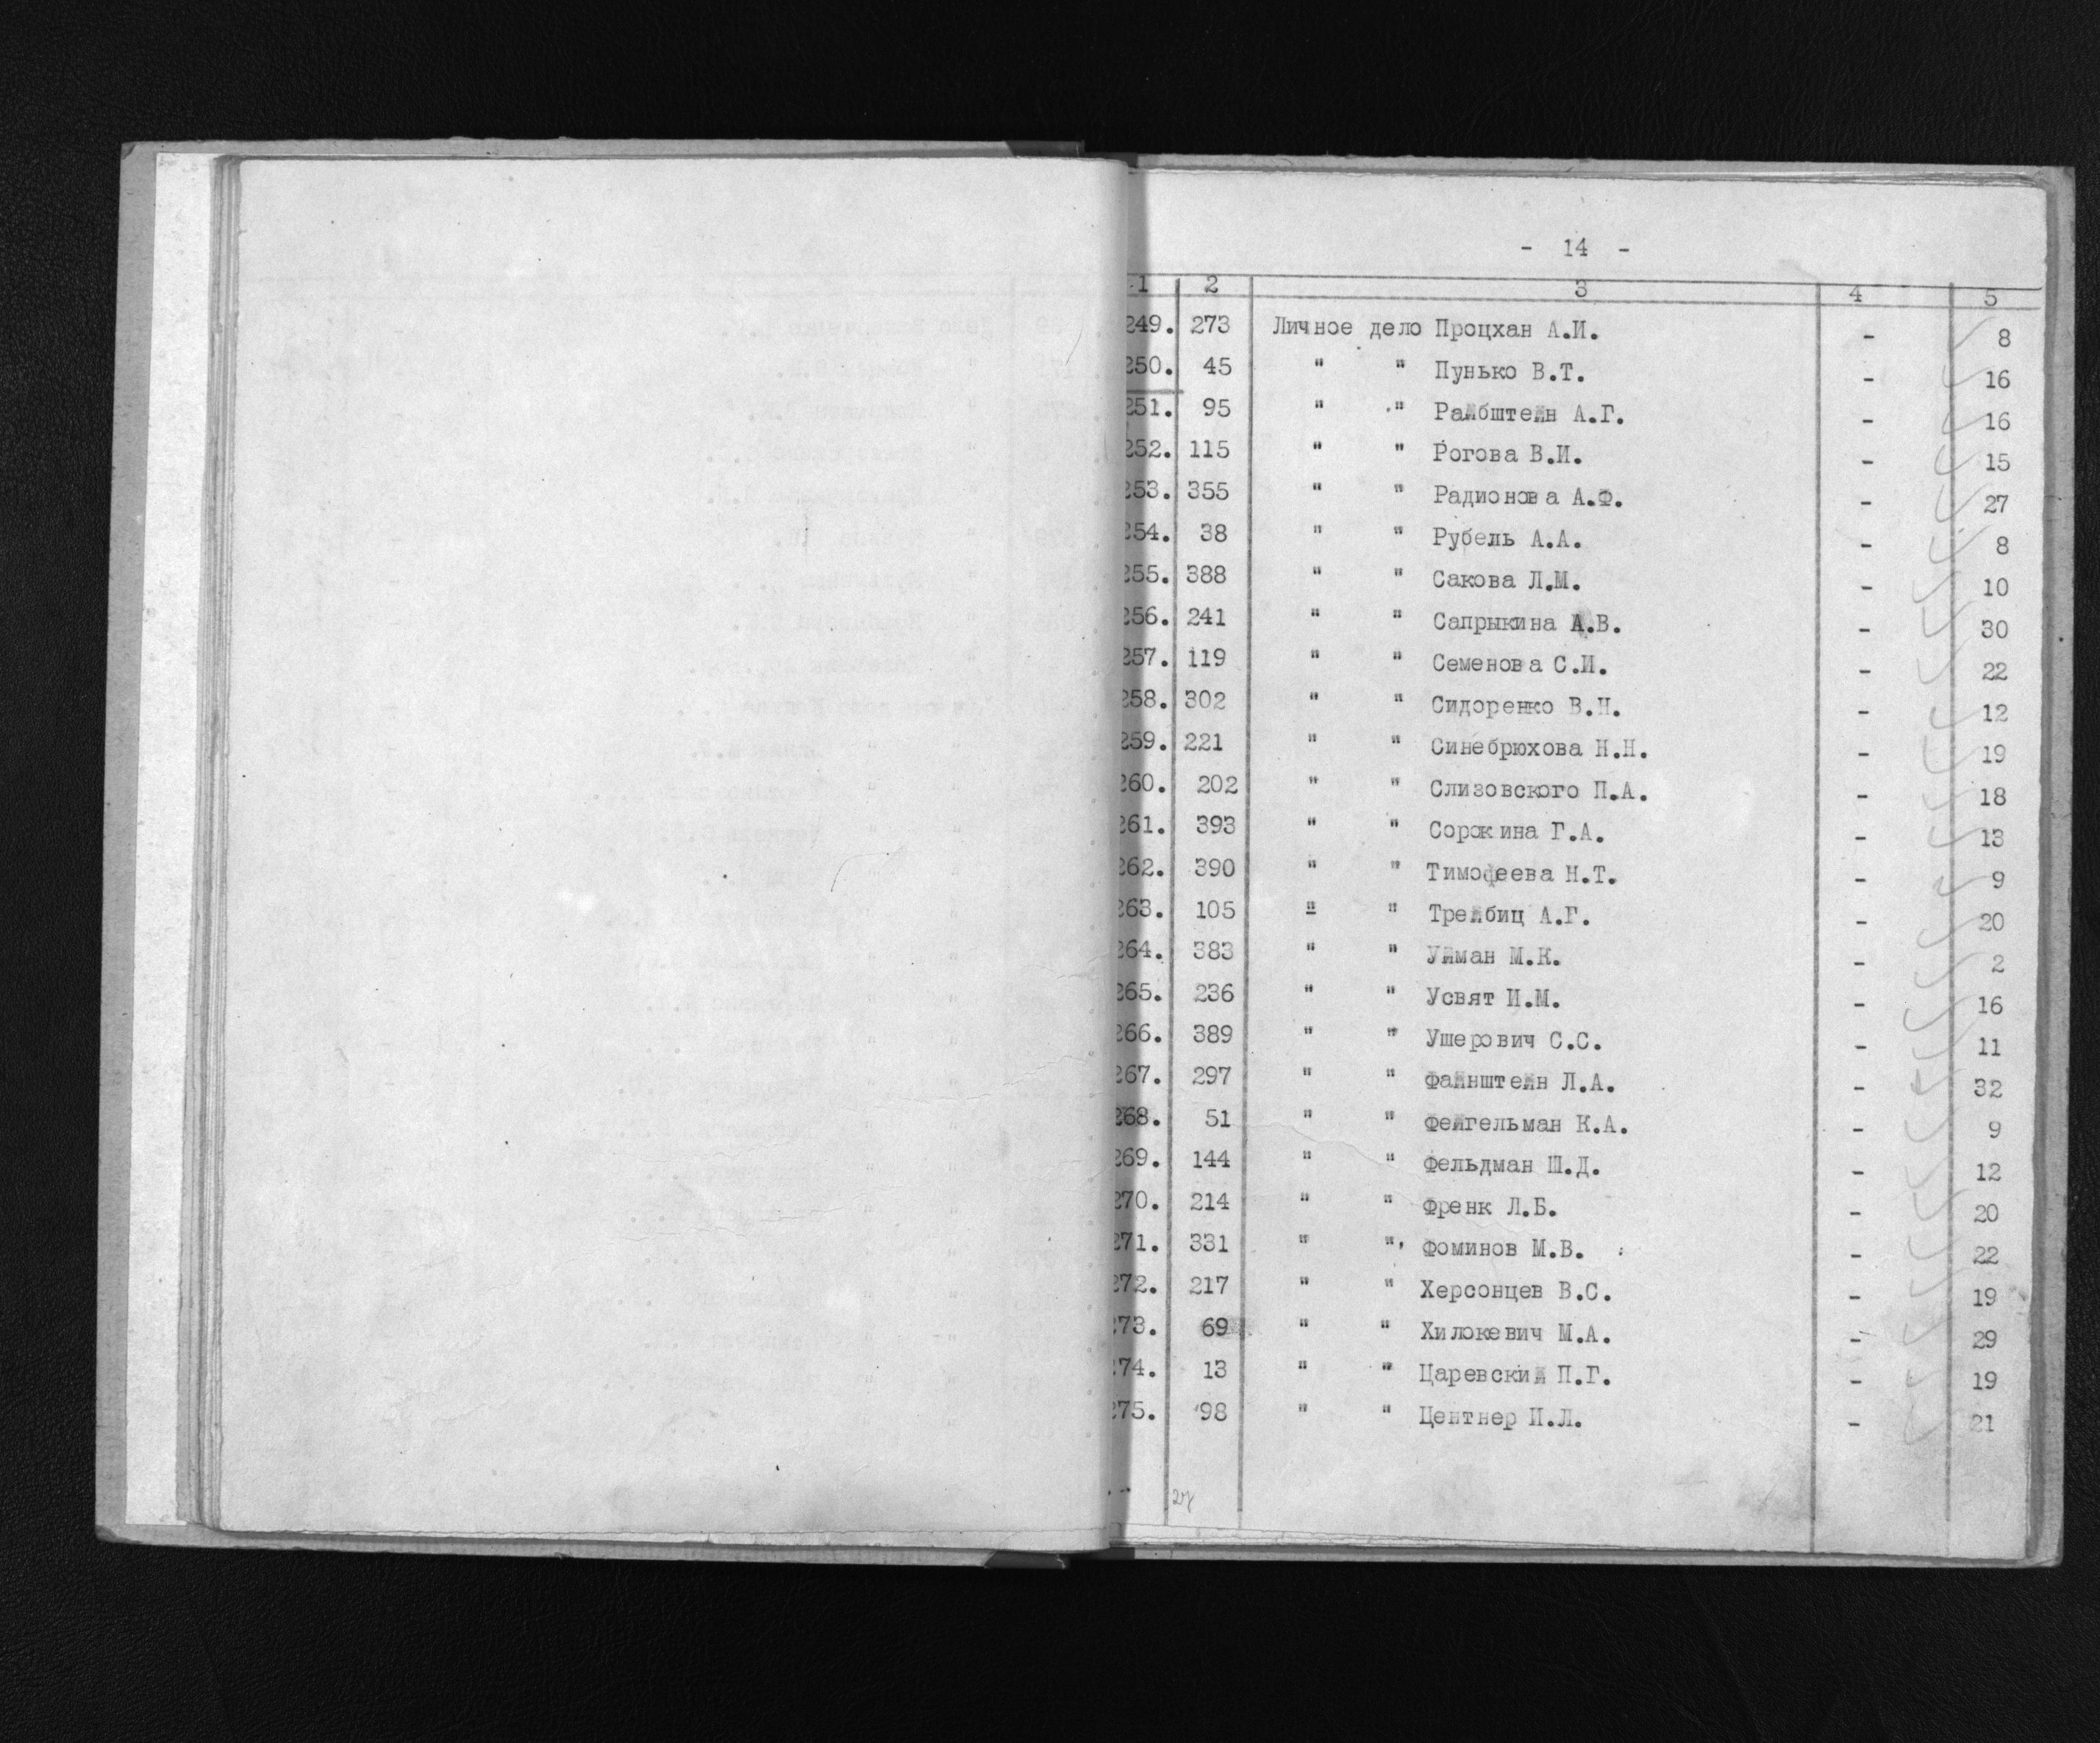 - 14 -
1 2 3 4 5
249. 273 Личное дело Процхан А.И. - 8
250. 45 " " Пунько В.Т. - 16
251. 95 " " Райбштейн А.Г. - 16
252. 115 " " Рогова В.И. - 15
253. 355 " " Радионова А.Ф. - 27
254. 38 " " Рубель А.А. - 8
255. 388 " " Сакова Л.М. - 10
256. 241 " " Сапрыкина А.В. - 30
257. 119 " " Семенова С.И. - 22
258. 302 " " Сидоренко В.Н. - 12
259. 221 " " Синебрюхова Н.Н. - 19
260. 202 " " Слизовского П.А. - 18
261. 393 " " Сорокина Г.А. - 13
262. 390 " " Тимофеева Н.Т. - 9
263. 105 " " Трейбиц А.Г. - 20
264. 383 " " Уйман М.К. - 2
265. 236 " " Усвят И.М. - 16
266. 389 " " Ушерович С.С. - 11
267. 297 " " Файнштейн Л.А. - 32
268. 51 " " Фейгельман К.А. - 9
269. 144 " " Фельдман Ш.Д. - 12
270. 214 " " Френк Л.Б. - 20
271. 331 " " Фоминов М.В. - 22
272. 217 " " Херсонцев В.С. - 19
273. 69 " " Хилюкевич М.А. - 29
274. 13 " " Царевский П.Г. - 19
275. 98 " " Центнер И.Л. - 21
27